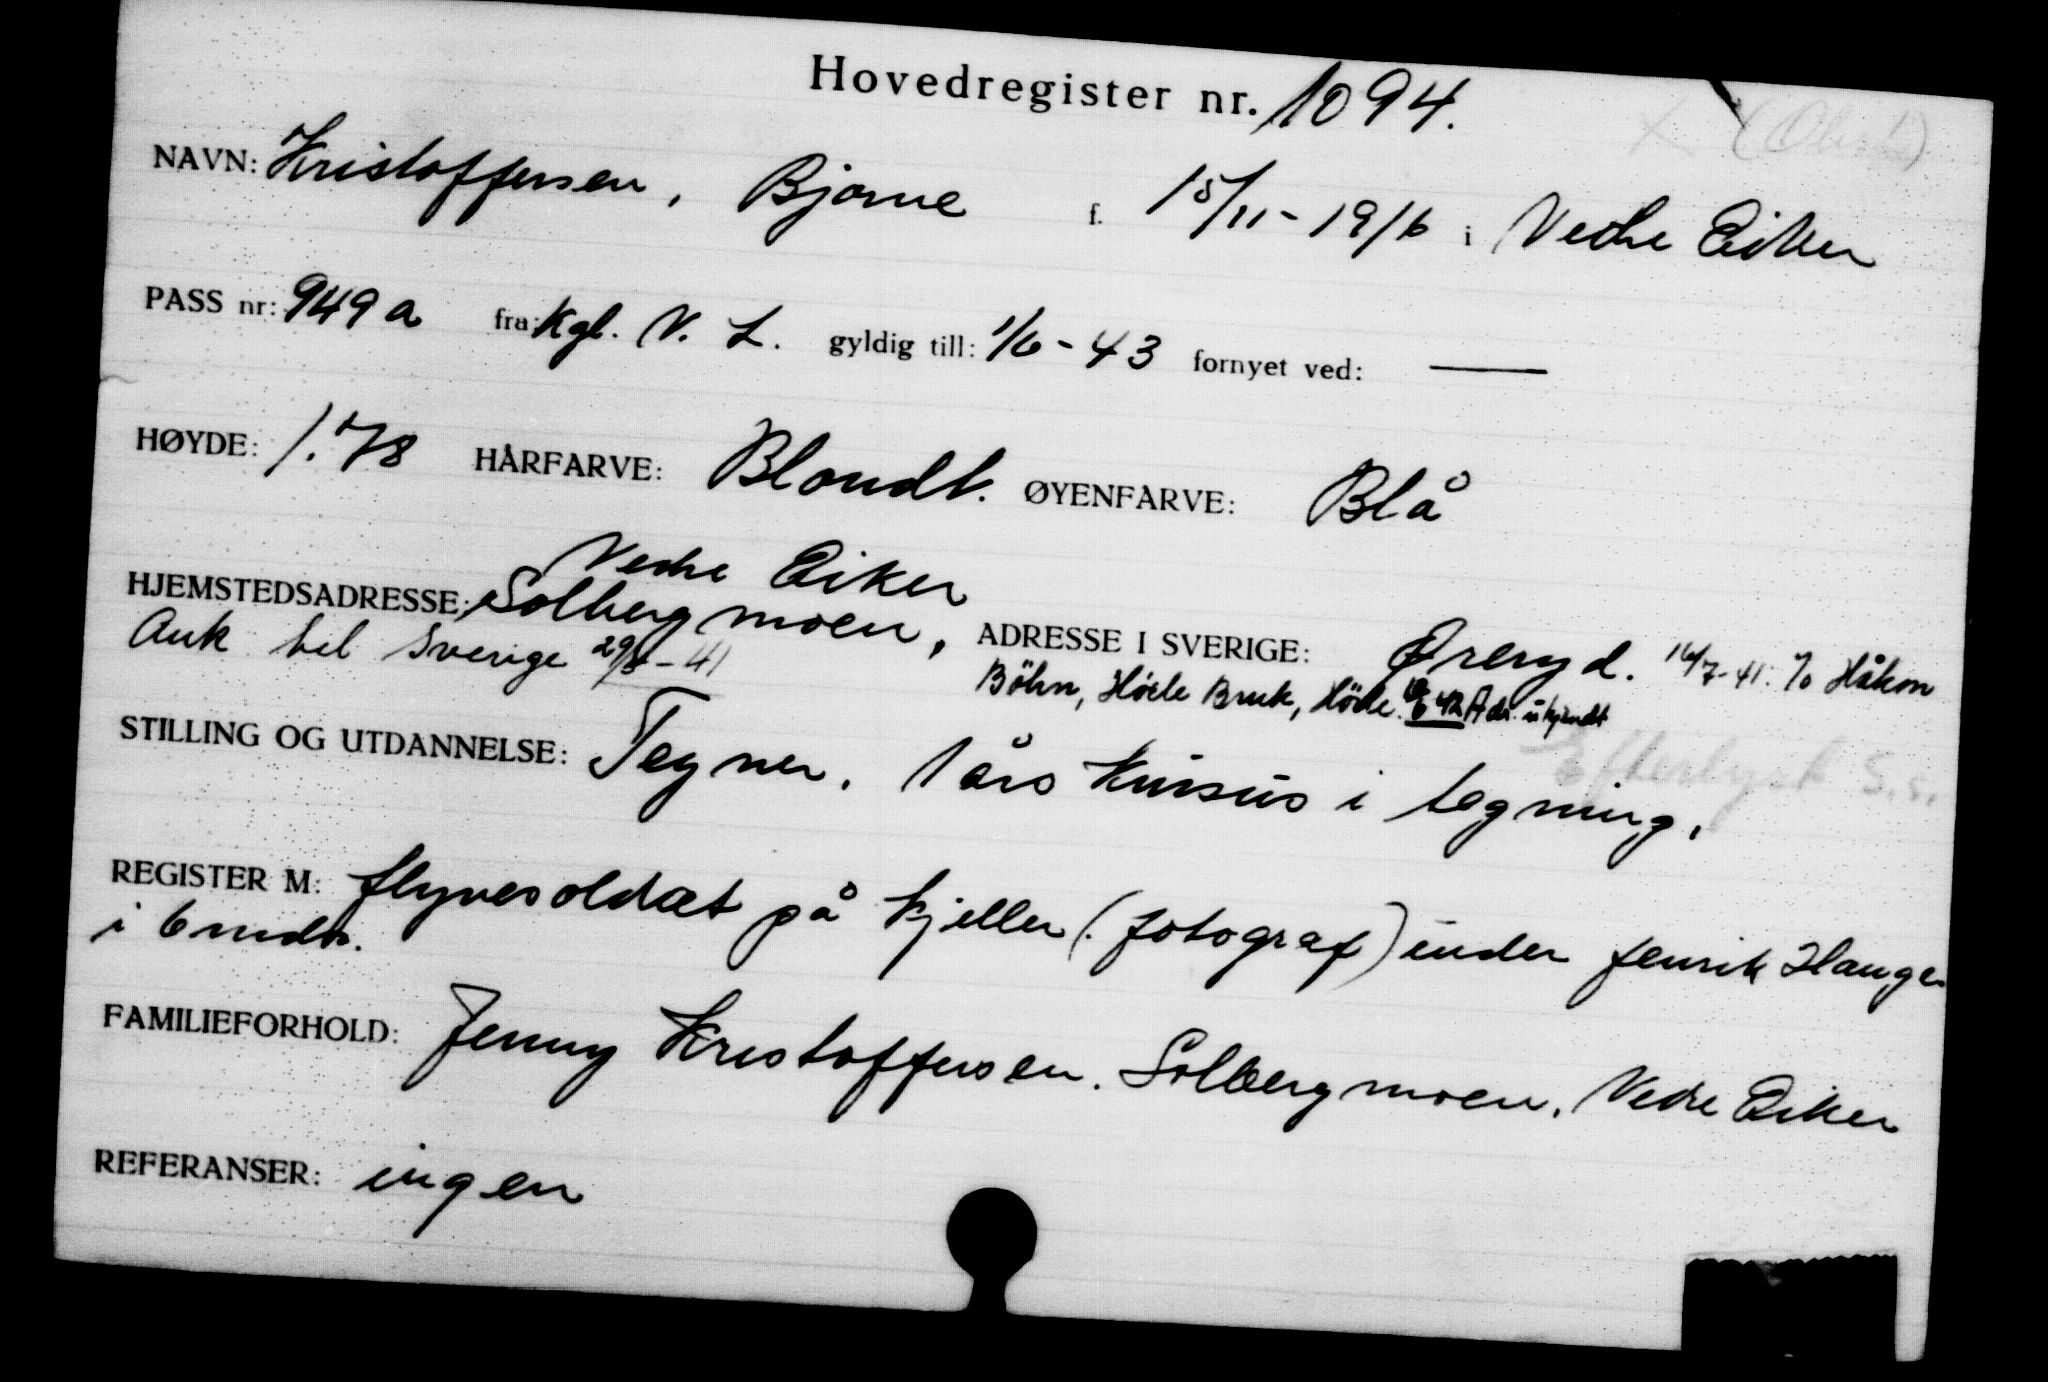 Hovedregister nr. 1094.
NAVN: Kristoffersen, Bjarne f. 15/11-1916 i Nedre Eiker
PASS nr: 949a fra: Kgl. N. L. gyldig till: 1/6-43 fornyet ved: —
HØYDE: 1.78 HÅRFARVE: Blondt. ØYENFARVE: Blå
Nedre Eiker
HJEMSTEDSADRESSE: Solbergmoen, ADRESSE I SVERIGE: Øreryd. 16/7-41: c/o Håkon
Ank til Sverige 29/5-41 Böhn, Höele Bruk, Höele. 42 Adr. ukjendt
STILLING OG UTDANNELSE: Tegner. 1 års kursus i tegning.
Efterlyst S.s.
REGISTER M: flyvesoldat på Kjeller (fotograf) under fenrik Hauge
i 6 mdr.
FAMILIEFORHOLD: Jenny Kristoffersen. Solbergmoen. Nedre Eiker
REFERANSER: ingen